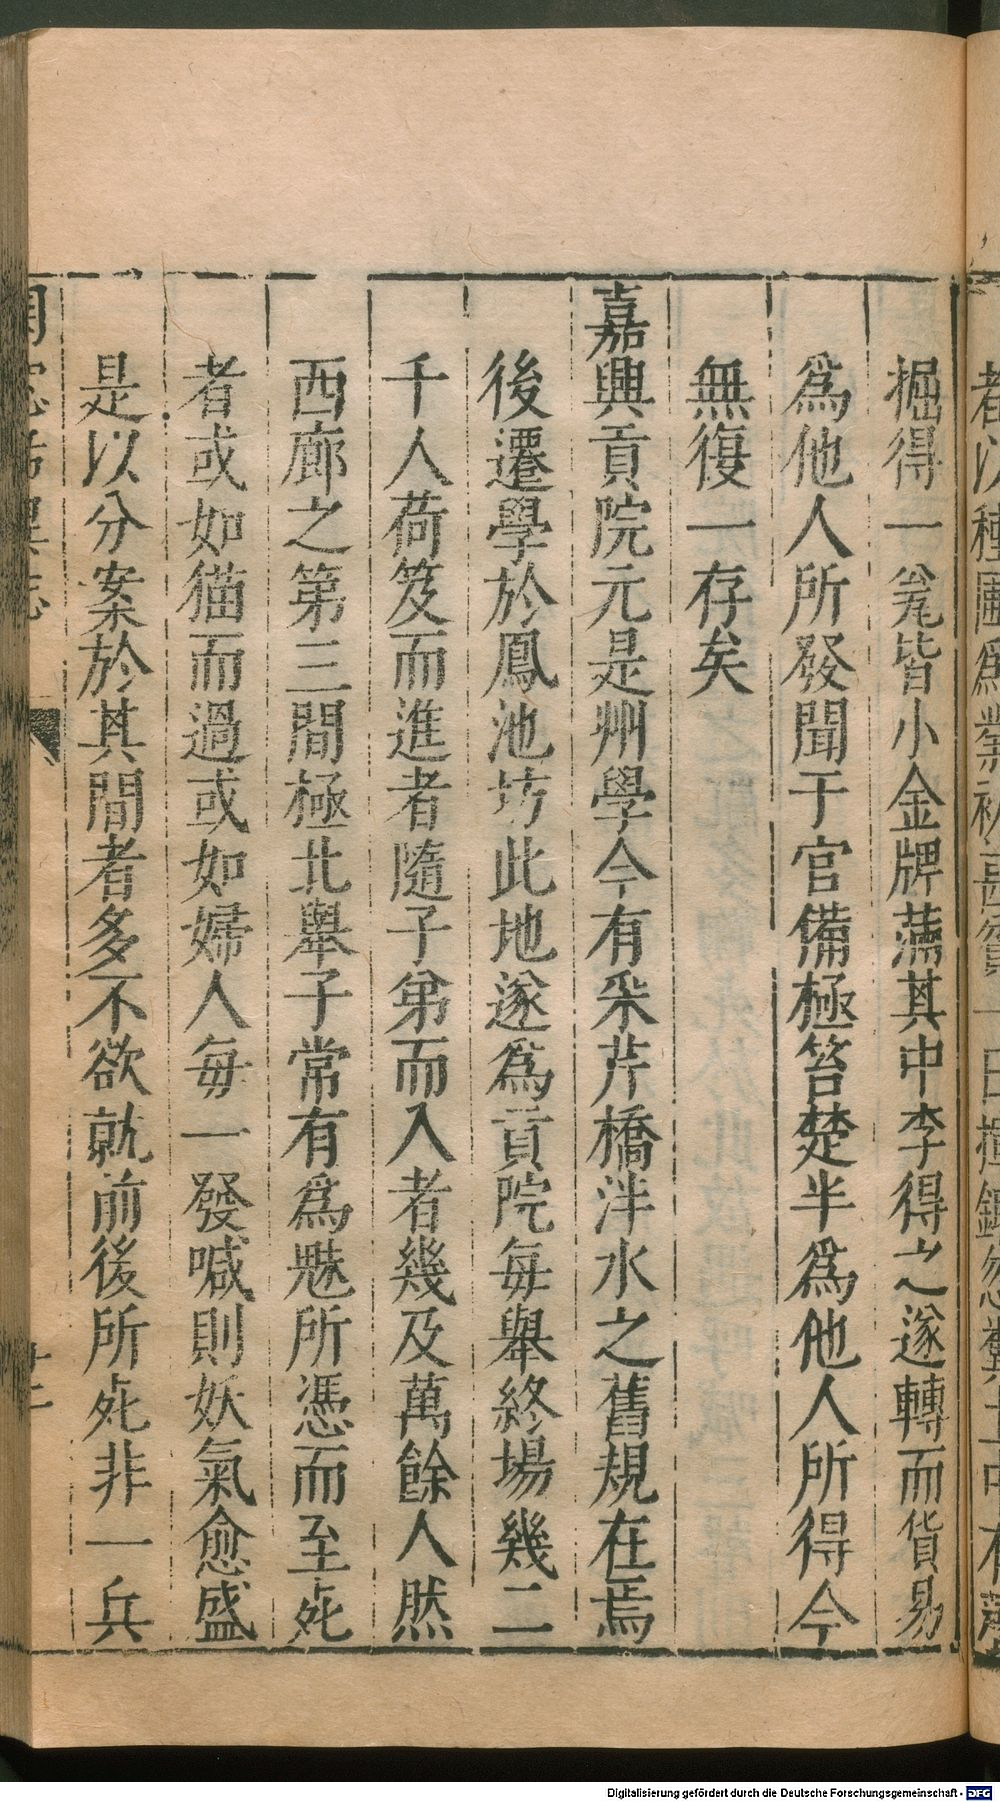 掘得一瓮皆小金牌滿其中李得之遂轉而貨易
為他人所發聞于官備極笞楚半為他人所得今
無復一存矣
嘉興貢院元是州學今有采芹橋泮水之舊規在焉
後遷學於鳳池坊此地遂為貢院每舉終場幾二
千人荷笈而進者隨子弟而入者幾及萬餘人然
西廊之第三間極北舉子常有為魅所憑而至死
者或如猫而過或如婦人每一發喊則妖氣愈盛
是以分案於其間者多不欲就前後所死非一兵
十二
Digitalisierung gefördert durch die Deutsche Forschungsgemeinschaft - DFG